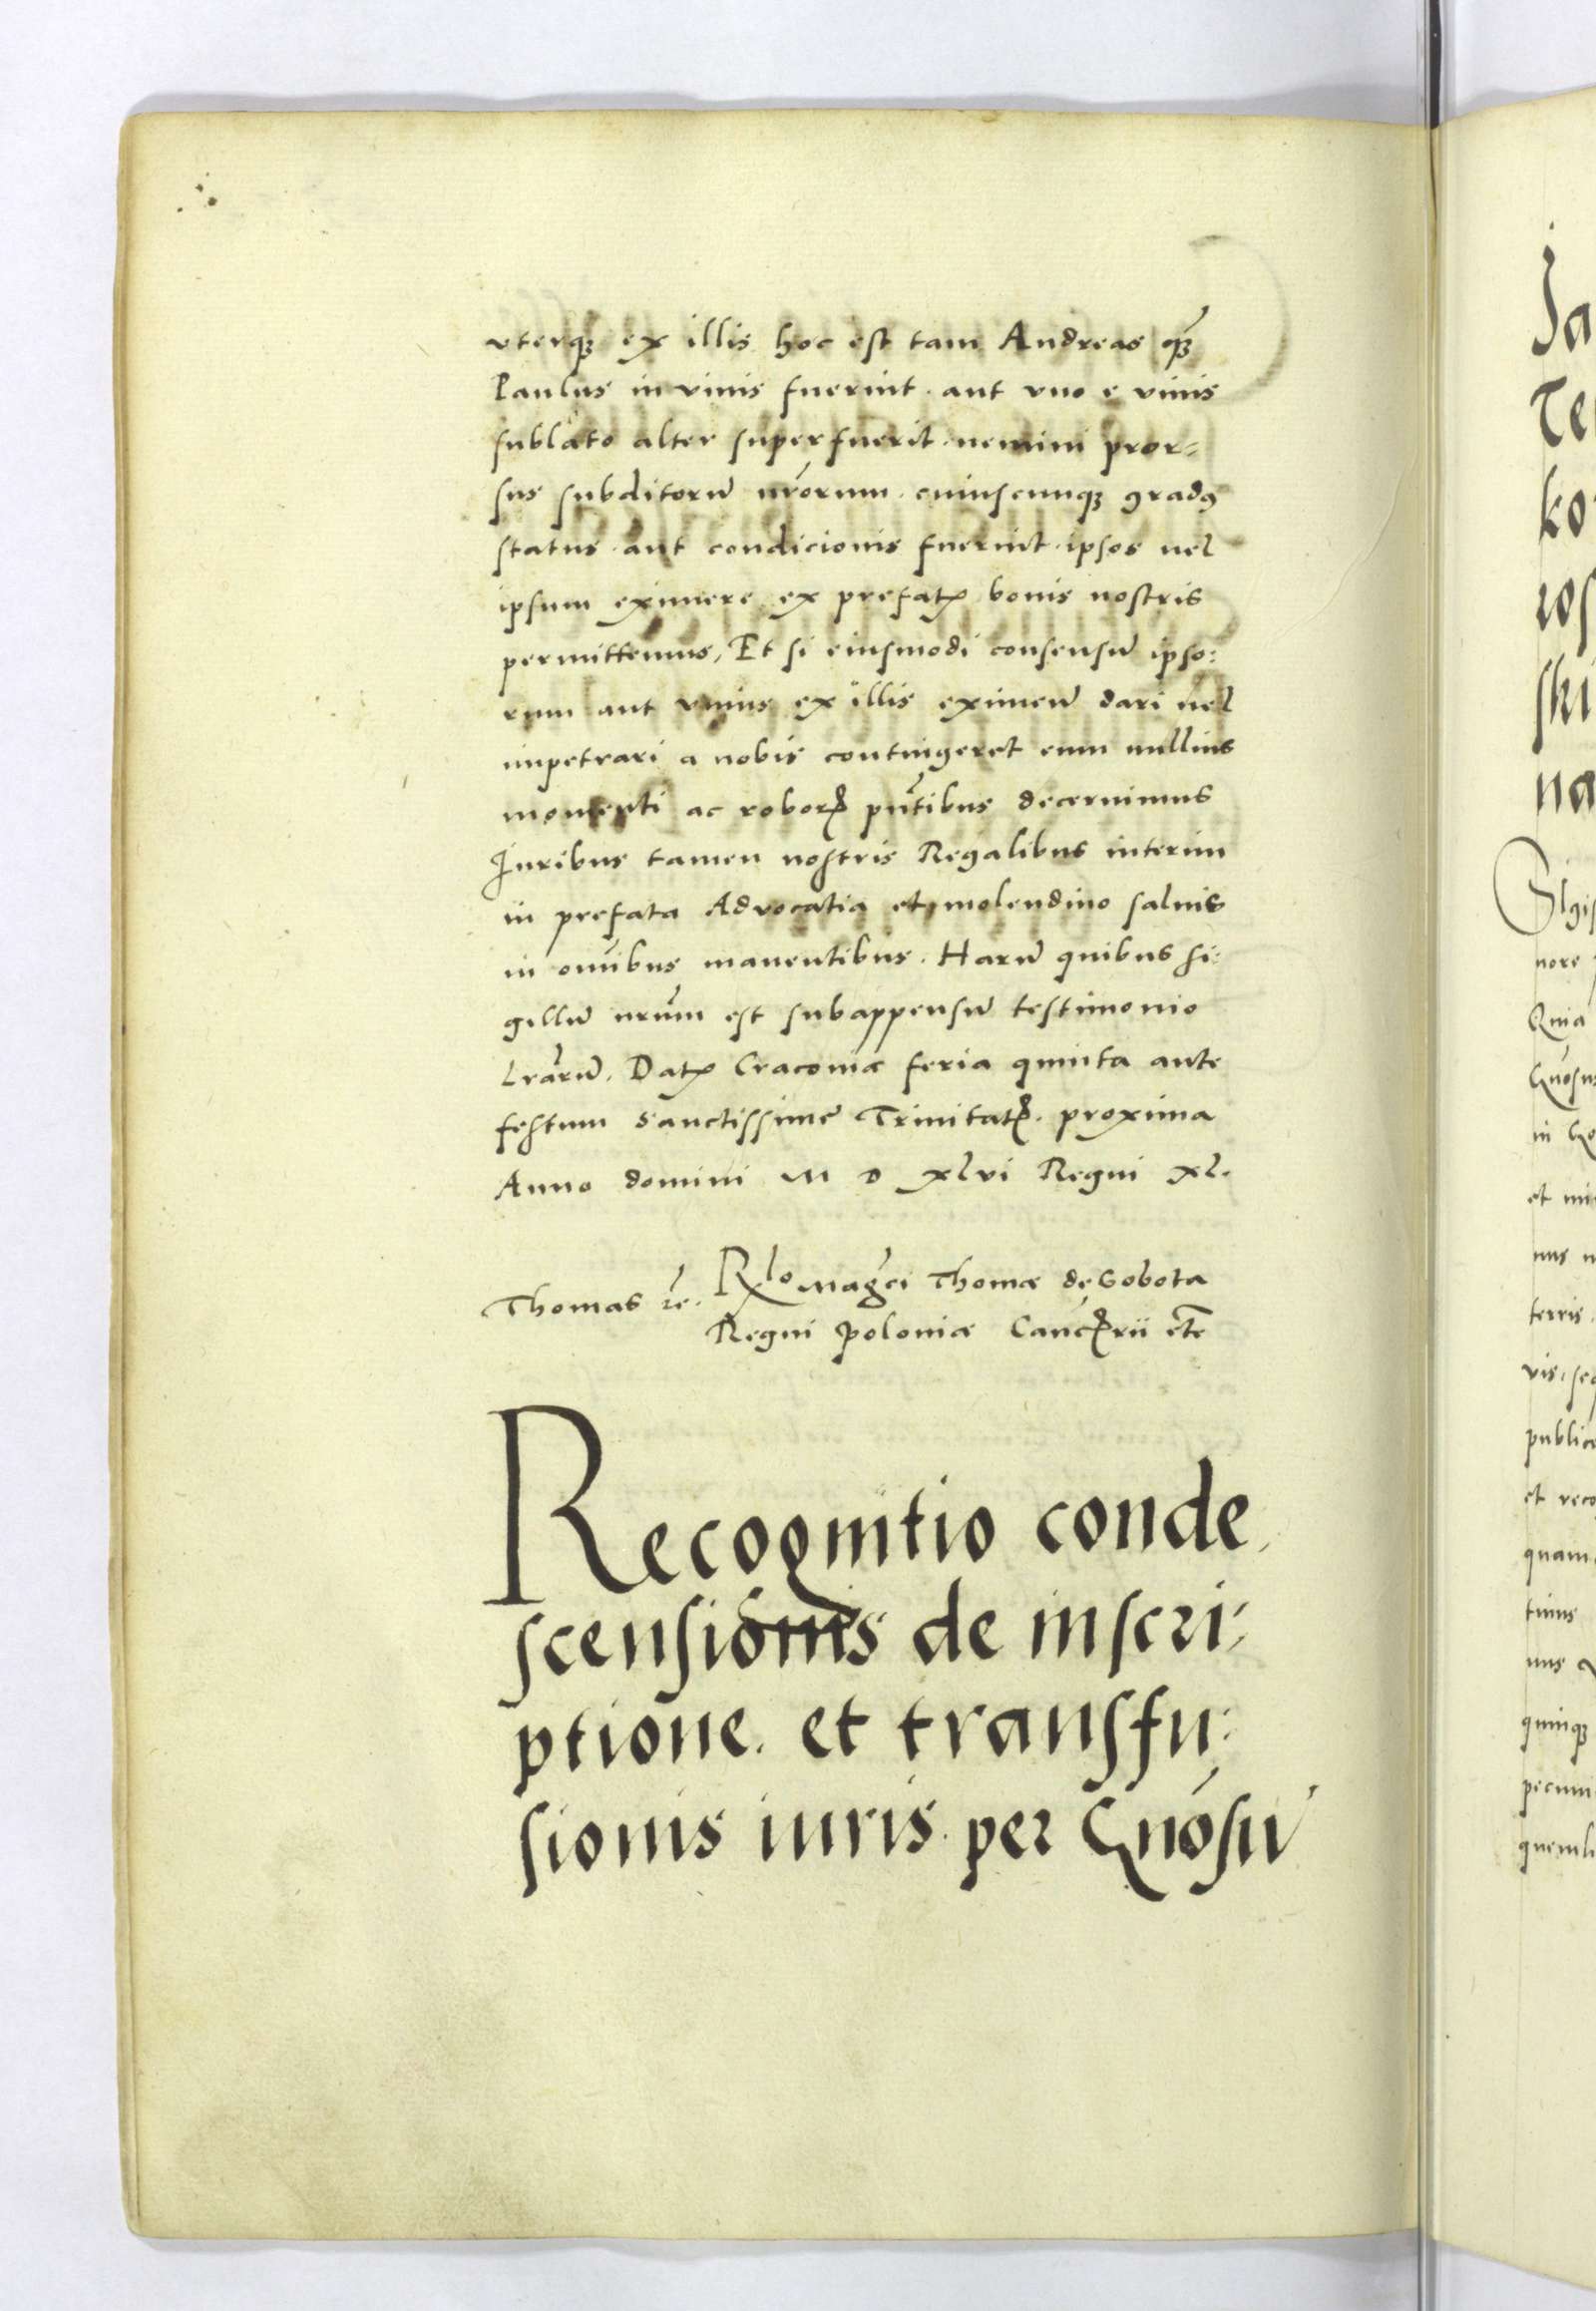 vterqꝫ ex illis hoc est tam Andreas qꝫ̃
Paulus in viuis fuerint. aut vno e viuis
sublato alter superfuerit. nemini pror=
sus subditorũ nr̃orum. cuiuscunqꝫ gradꝯ
status. aut condicionis fuerint. ipsos uel
ipsum eximere. ex prefatꝭ bonis nostris
permittemus, Et si eiusmodi consensũ ipso:
rum aut vnius ex illis eximeñ dari uel
impetrari a nobis contingeret eum nullius
momenti ac roborꝭ pñtibus decernimus
Juribus tamen nostris Regalibus interim
in prefata Advocatia et molendino saluis
in om̃ibus manentibus. Harũ quibus si:
gillũ nr̃um est subappensũ testimonio
Lr̃arũ. Datꝭ Cracouiæ feria quinta ante
festum Sanctissime Trinitatꝭ. proxima
Anno domini M D xlvi Regni xl.
Thomas re. Rlo Magci Thomæ de Sobota
Regni Poloniæ Canc̃rii etc̃
Recognitio conde,
scensionis de inscri,
ptione. et transfu:
sionis iuris. per Gnõsũ
Ja
Te
ko
ros
ski
na
Sigis
nore
Quia
Gnõsus
in Go
et mi
nus
terris.
vis. seq
publice
et reco
quam
tinus
nus
quinqꝫ
pecuni
quemli